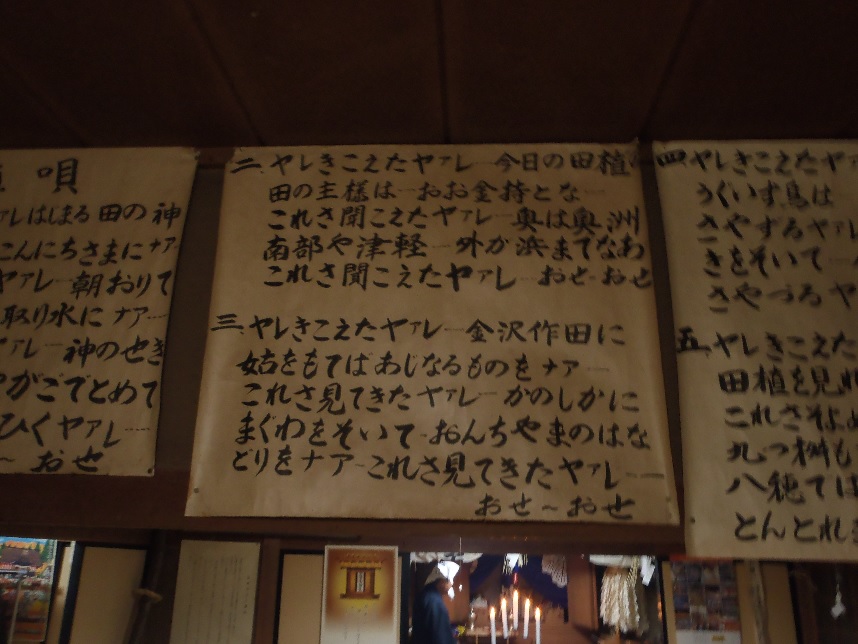 唄
ァレはしまる田の神
こんにちさまにナァ
ヤァレー朝おりて
取り水にナァー
ァレー神のせき
がごでとめて
ひくヤァレー
～おせ
二、ヤレきこえたヤァレー今日の田植
田の主様はーおお金持とな
これさ聞こえたヤァレー奥は奥洲
南部や津軽ー外が浜までなあ
これさ聞こえたヤァレーおせーおせ
三、ヤレきこえたヤァレー金沢作田に
姑をもてばあじなるものをナァー
これさ見てきたヤァレーかのしかに
まぐわをそいてーおんちやまのはな
どりをナアーこれさ見てきたヤァレー
おせ～おせ
四、ヤレきこえたヤァ
うぐいす鳥は
さやずるヤァレ
きをそいてー
さやづるヤ
五、ヤレきこえた
田植を見れ
これさそよめ
九つ桝も
八穂では
とんとれ